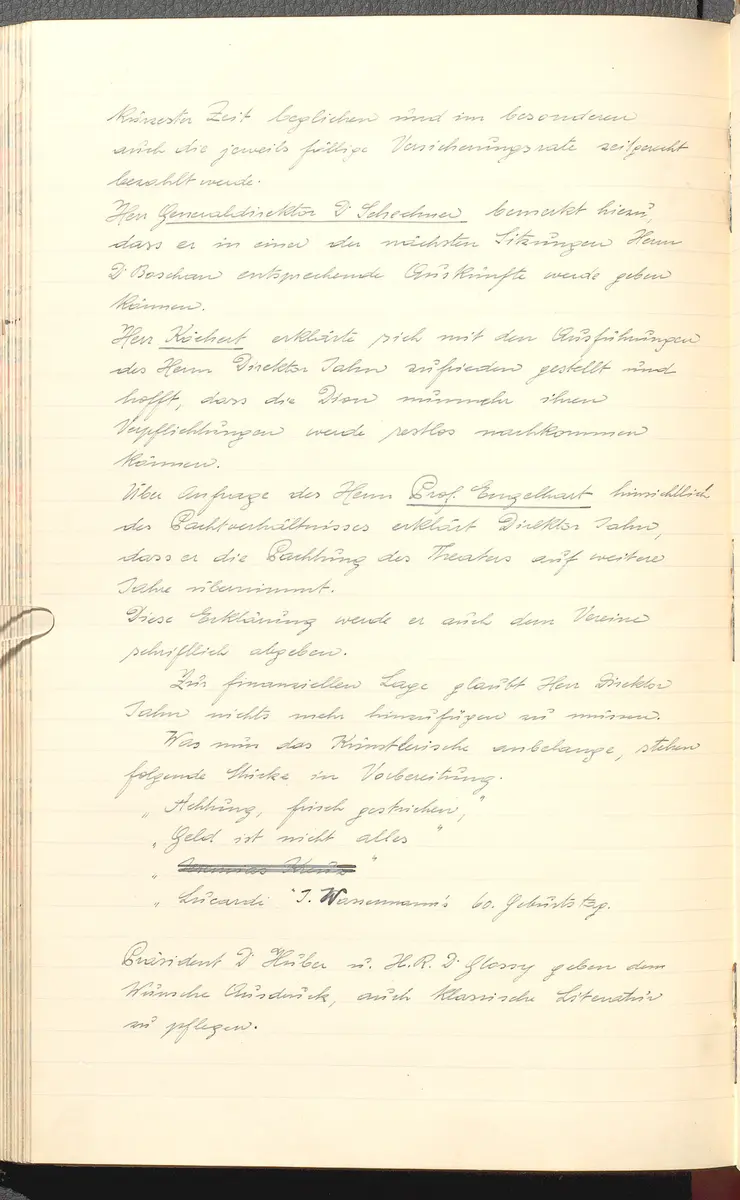 kürzester Zeit beglichen und im besonderen
auch die jeweils fällige Versicherungsrate zeitgerecht
bezahlt werde.
Herr Generaldirektor Dr Schechner bemerkt hiezu,
dass er in einer der nächsten Sitzungen Herrn
Dr Boschan entsprechende Auskünfte werde geben
können.
Herr Köchert erklärte sich mit den Ausführungen
des Herrn Direktor Jahn zufrieden gestellt und
hofft, dass die Dion nunmehr ihren
Verpflichtungen werde restlos nachkommen
können.
Über Anfrage des Herrn Prof. Engelhart hinsichtlich
des Pachtverhältnisses erklärt Direktor Jahn,
dass er die Pachtung des Theaters auf weitere
Jahre übernimmt.
Diese Erklärung werde er auch dem Vereine
schriftlich abgeben.
Zur finanziellen Lage glaubt Herr Direktor
Jahn nichts mehr hinzufügen zu müssen.
Was nun das Künstlerische anbelange, stehen
folgende Stücke in Vorbereitung.
„Achtung, frisch gestrichen,"
„Geld ist nicht alles"
„ "
„Lucardi" J. Wassermann's 60. Geburtstag.
Präsident Dr Huber u. H.R. Dr Glossy geben dem
Wunsche Ausdruck, auch klassische Literatur
zu pflegen.